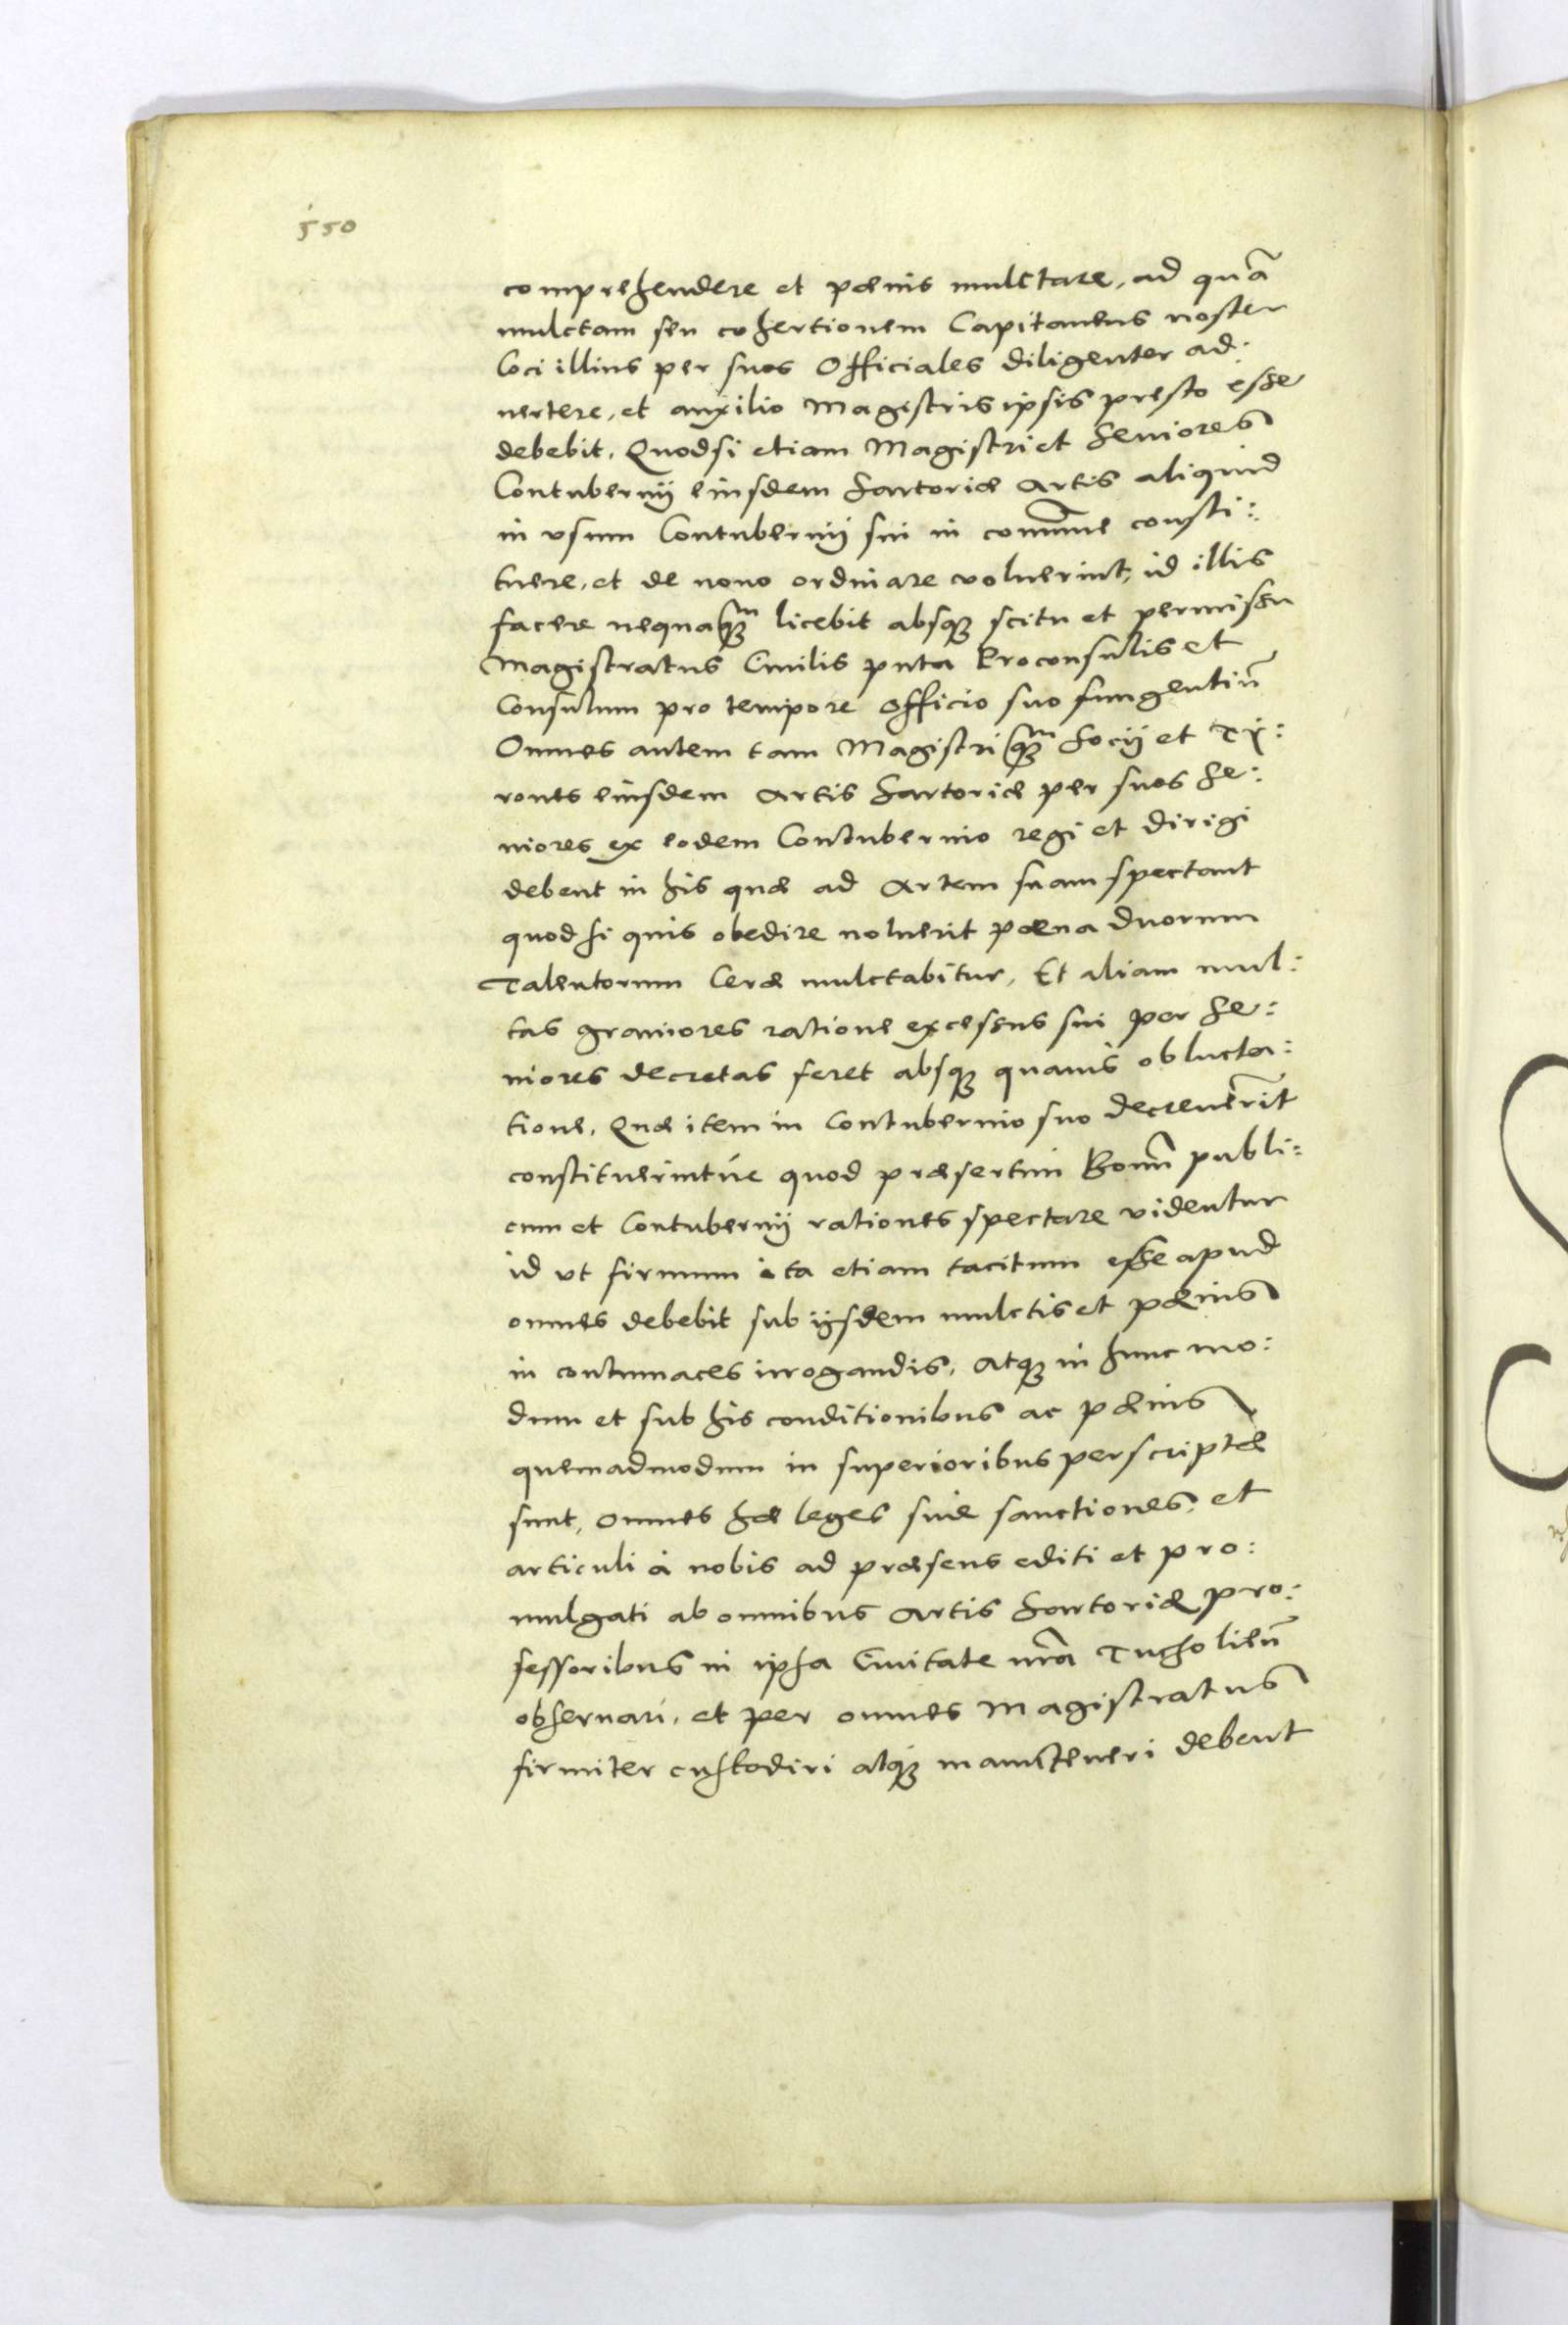 550
comprehendere et pœnis mulctare, ad quā
mulctam seu cohertionem Capitaneus noster
loci illius per suos Officiales diligenter ad:
uertere, et auxilio Magistris ipsis presto esse
debebit. Quodsi etiam Magistri et Seniores
Contubernij eiusdem Sartoriæ Artis aliquid
in vsum Contubernij sui in com̄une consti:
tuere, et de nouo ordinare voluerint, id illis
facere nequaqꝫm licebit absqꝫ scitu et permissu
Magistratus Ciuilis puta Proconsulis et
Consulum pro tempore officio suo fungentiū
Omnes autem tam Magistri qꝫm Socij et Ty:
rones eiusdem Artis Sartoriæ per suos Se:
niores ex eodem Contubernio regi et dirigi
debent in his quæ ad Artem suam spectant
quod si quis obedire noluerit pœna duorum
Talentorum Ceræ mulctabitur, Et aliam mul:
tas grauiores ratione excessus sui per Se:
niores decretas feret absqꝫ quauis oblucta:
tione. Quæ item in Contubernio suo decreuer̄it
constituerintúe quod præsertim Bonū publi:
cum et Contubernij rationes spectare videntur
id vt firmum ita etiam tacitum esse apud
omnes debebit sub ijsdem mulctis et pœnis
in contumaces irrogandis. Atqꝫ in hunc mo:
dum et sub his conditionibus ac pœnis
quemadmodum in superioribus perscriptæ
sunt, omnes hæ leges siue sanctiones, et
articuli à nobis ad præsens editi et pro:
mulgati ab omnibus Artis Sartoriæ pro:
fessoribus in ipsa Ciuitate nr̄a Tucholieñ
obseruari, et per omnes Magistratus
firmiter custodiri atqꝫ manuteneri debent